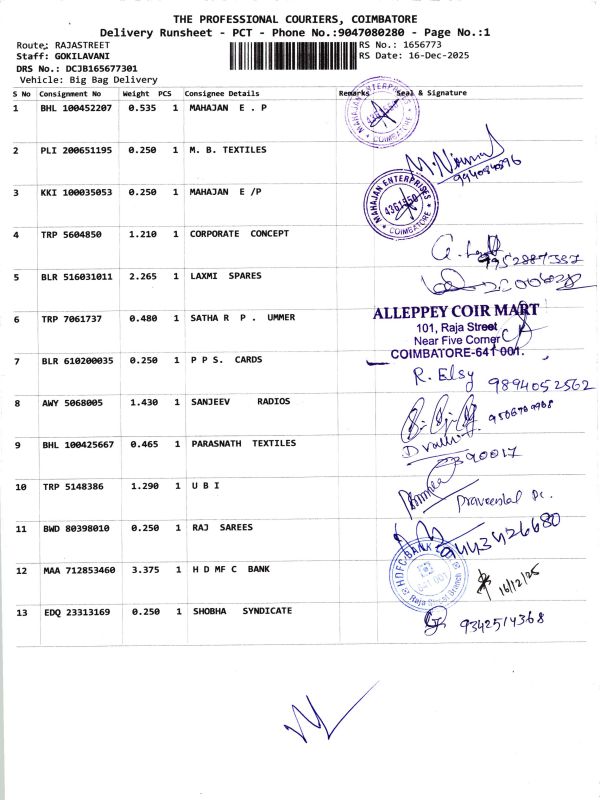 THE PROFESSIONAL COURIERS, COIMBATORE
Delivery Runsheet - PCT - Phone No.:9047080280 - Page No.:1
Route: RAJASTREET
RS No.: 1656773
Staff: GOKILAVANI
RS Date: 16-Dec-2025
DRS No.: DCJB165677301
Vehicle: Big Bag Delivery
S No Consignment No Weight PCS Consignee Details Remarks Seal & Signature
1 BHL 100452207 0.535 1 MAHAJAN E . P
MAHAJAN ENTERPRISES COIMBATORE
2 PLI 200651195 0.250 1 M. B. TEXTILES
3 KKI 100035053 0.250 1 MAHAJAN E /P
MAHAJAN ENTERPRISES 4361550 COIMBATORE
4 TRP 5604850 1.210 1 CORPORATE CONCEPT
9952887387
5 BLR 516031011 2.265 1 LAXMI SPARES
6 TRP 7061737 0.480 1 SATHA R P . UMMER
ALLEPPEY COIR MART
101, Raja Street
Near Five Corner
COIMBATORE-641 001.
7 BLR 610200035 0.250 1 P P S. CARDS
R. Elsy 9894052562
8 AWY 5068005 1.430 1 SANJEEV RADIOS
9 BHL 100425667 0.465 1 PARASNATH TEXTILES
10 TRP 5148386 1.290 1 U B I
11 BWD 80398010 0.250 1 RAJ SAREES
9443426680
12 MAA 712853460 3.375 1 H D MF C BANK
HDFC BANK Raja Street Branch
16/12/25
13 EDQ 23313169 0.250 1 SHOBHA SYNDICATE
9342514368